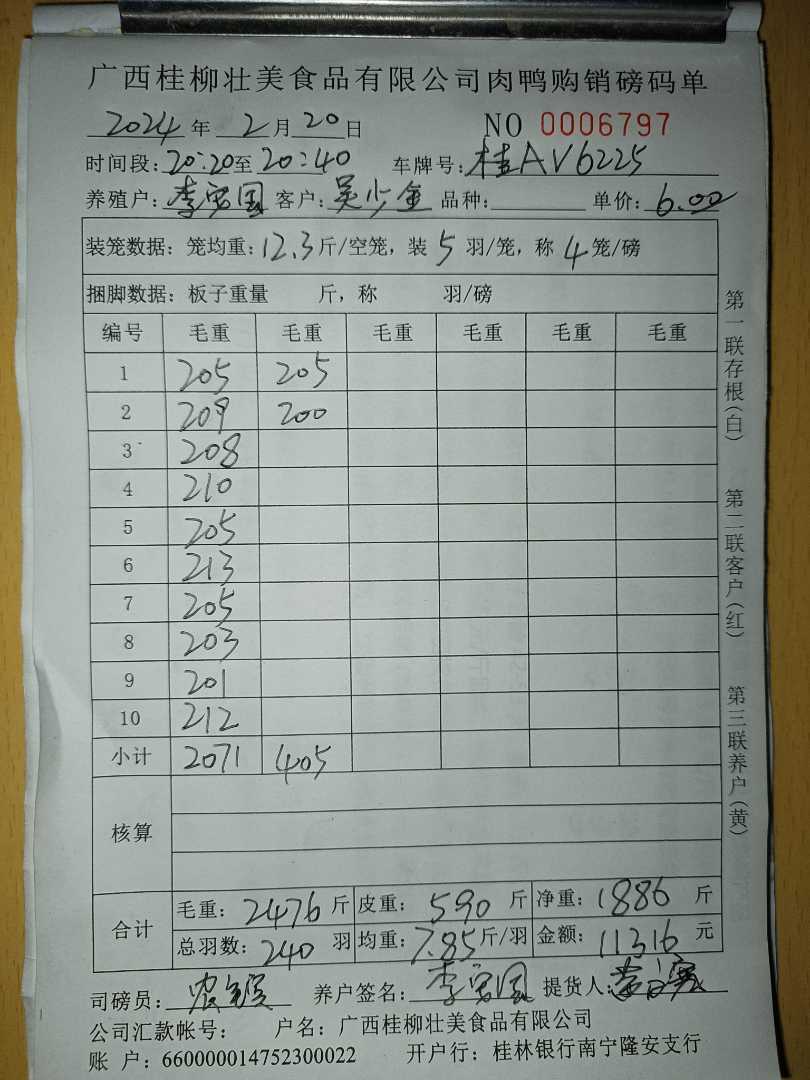 广西桂柳壮美食品有限公司肉鸭购销磅码单
2024年2月20日 NO 0006797
时间段:20:20至20:40 车牌号:桂AV6225
养殖户:李 国 客户:吴少金 品种: 单价:6.00
装笼数据:笼均重:12.3斤/空笼,装5羽/笼,称4笼/磅
捆脚数据:板子重量 斤,称 羽/磅
编号 毛重 毛重 毛重 毛重 毛重 毛重
1 205 205
2 209 200
3 208
4 210
5 205
6 213
7 205
8 203
9 201
10 212
小计 2071 405
核算
合计 毛重:2476斤 皮重:590斤 净重:1886斤
总羽数:240羽 均重:7.85斤/羽 金额:11316元
司磅员: 养户签名:李 国 提货人:
公司汇款帐号: 户名:广西桂柳壮美食品有限公司
账 户:660000014752300022 开户行:桂林银行南宁隆安支行
第一联存根(白) 第二联客户(红) 第三联养户(黄)